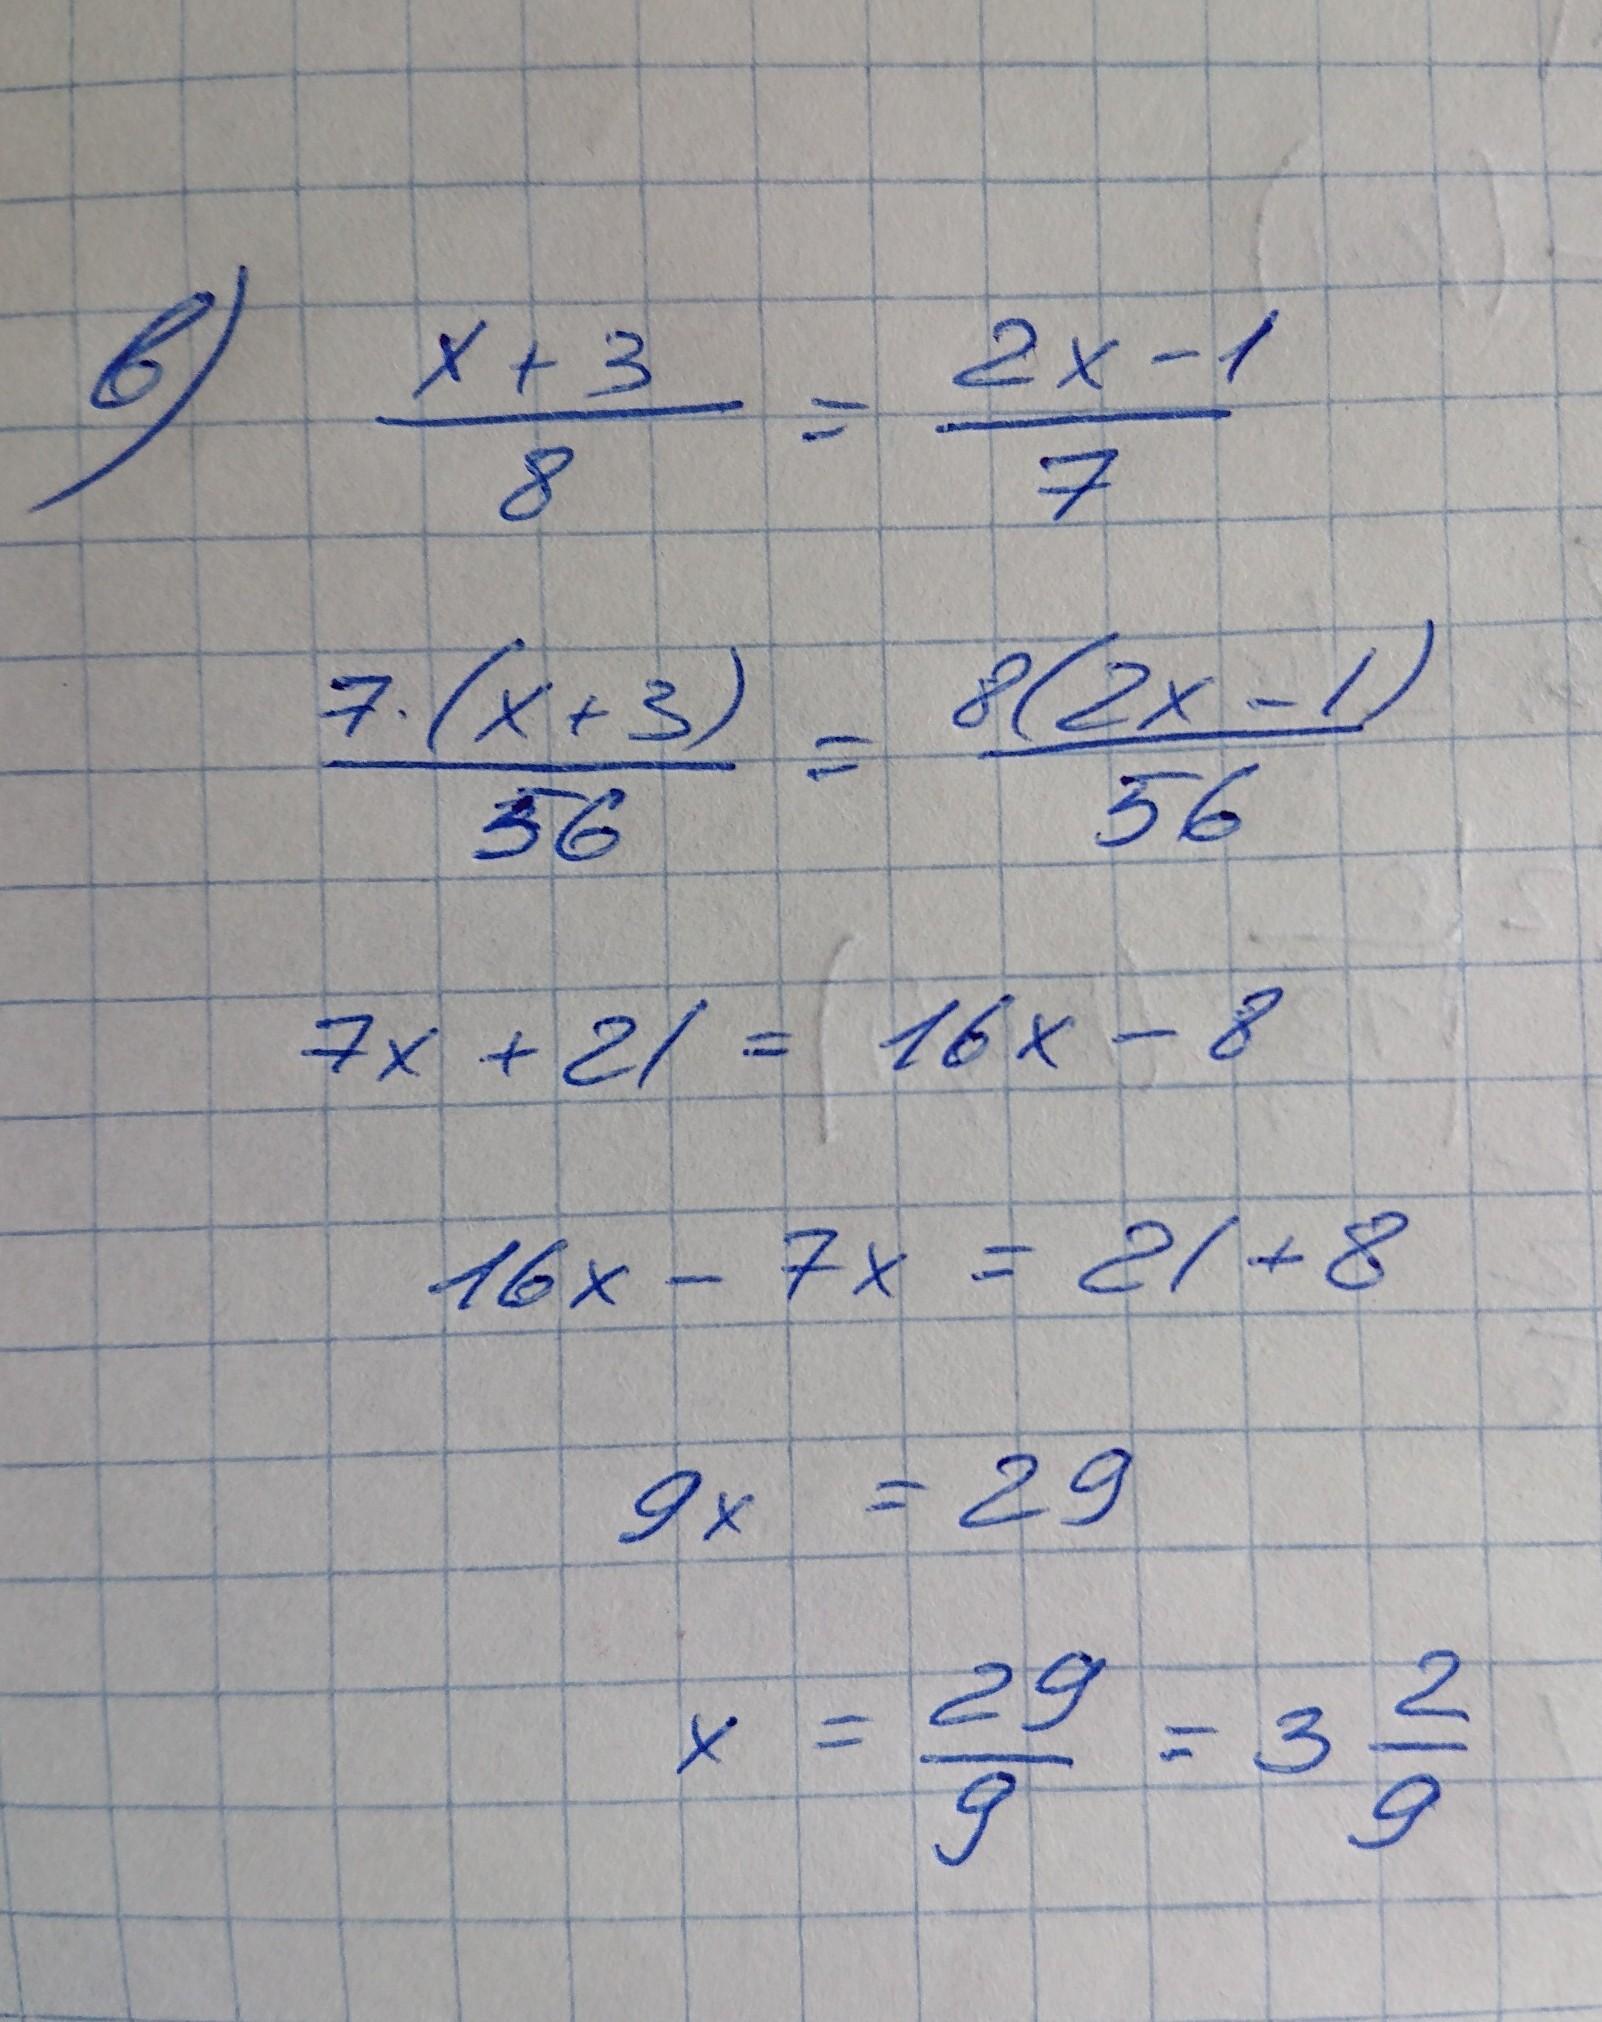 в) x + 3 / 8 = 2x - 1 / 7
7·(x + 3) / 56 = 8(2x - 1) / 56
7x + 21 = 16x - 8
16x - 7x = 21 + 8
9x = 29
x = 29/9 = 3 2/9